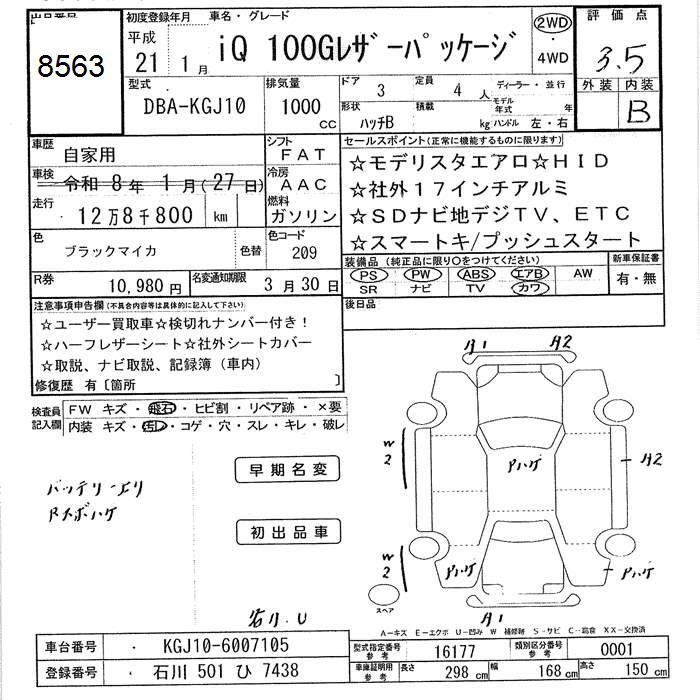 出品番号
8563
初度登録年月
平成
21 1月
車名・グレード
iQ 100Gレザーパッケージ
2WD
・
4WD
評価点
3.5
外装 内装
B
型式
DBA-KGJ10
排気量
1000 CC
ドア 3
形状 ハッチB
定員 4 人
積載 kg
ディーラー・並行
モデル年式 年
ハンドル 左・右
車歴 自家用
車検 令和 8年 1月(27日)
走行 12万8千800 km
シフト FAT
冷房 AAC
燃料 ガソリン
セールスポイント(正常に機能するものに限ります)
☆モデリスタエアロ☆HID
☆社外17インチアルミ
☆SDナビ地デジTV、ETC
☆スマートキ/プッシュスタート
色 ブラックマイカ 色替
色コード 209
装備品 (純正品に限り○をつけてください)
PS PW ABS エアB AW
SR ナビ TV カワ
新車保証書
有・無
R券 10,980円
名変通知期限 3月30日
後日品
注意事項申告欄 (不具合内容等は具体的に記入して下さい)
☆ユーザー買取車☆検切れナンバー付き!
☆ハーフレザーシート☆社外シートカバー
☆取説、ナビ取説、記録簿(車内)
修復歴 有〔箇所 〕
検査員記入欄
FW キズ・飛石・ヒビ割・リペア跡・×要
内装 キズ・汚レ・コゲ・穴・スレ・キレ・破レ
A1 A2
W2
Pハゲ
A2
W2
Pハゲ
Pハゲ
スペア
A1
バッテリー上リ
早期名変
初出品車
A-キズ E-エクボ U-凹み W 補修跡 S-サビ C-腐食 XX-交換済
車台番号 ・ KGJ10-6007105
登録番号 ・ 石川 501 ひ 7438
型式指定番号 参考 16177
類別区分番号 参考 0001
車庫証明用 参考 長さ 298 cm 幅 168 cm 高さ 150 cm